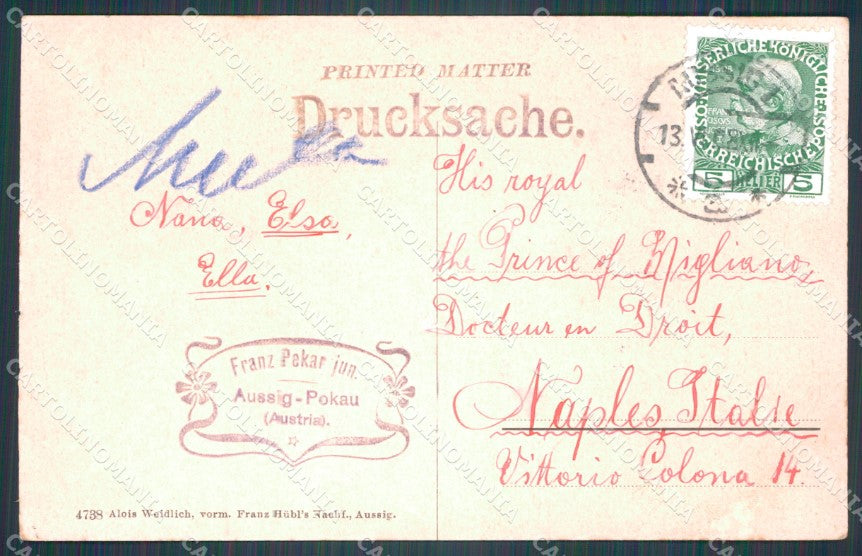 PRINTED MATTER
Drucksache.
Nana, Elsa,
Ella.
Franz Pekar jun.
Aussig-Pokau
(Austria).
4738 Alois Weidlich, vorm. Franz Hübl's Nachf., Aussig.
KAISERLICHE KÖNIGLICHE
POST
ÖSTERREICHISCHE
5 HELLER 5
13.
His royal
the Prince of Migliano,
Docteur en Droit,
Naples, Italie
Vittorio Colona 14.
CARTOLINOMANIA